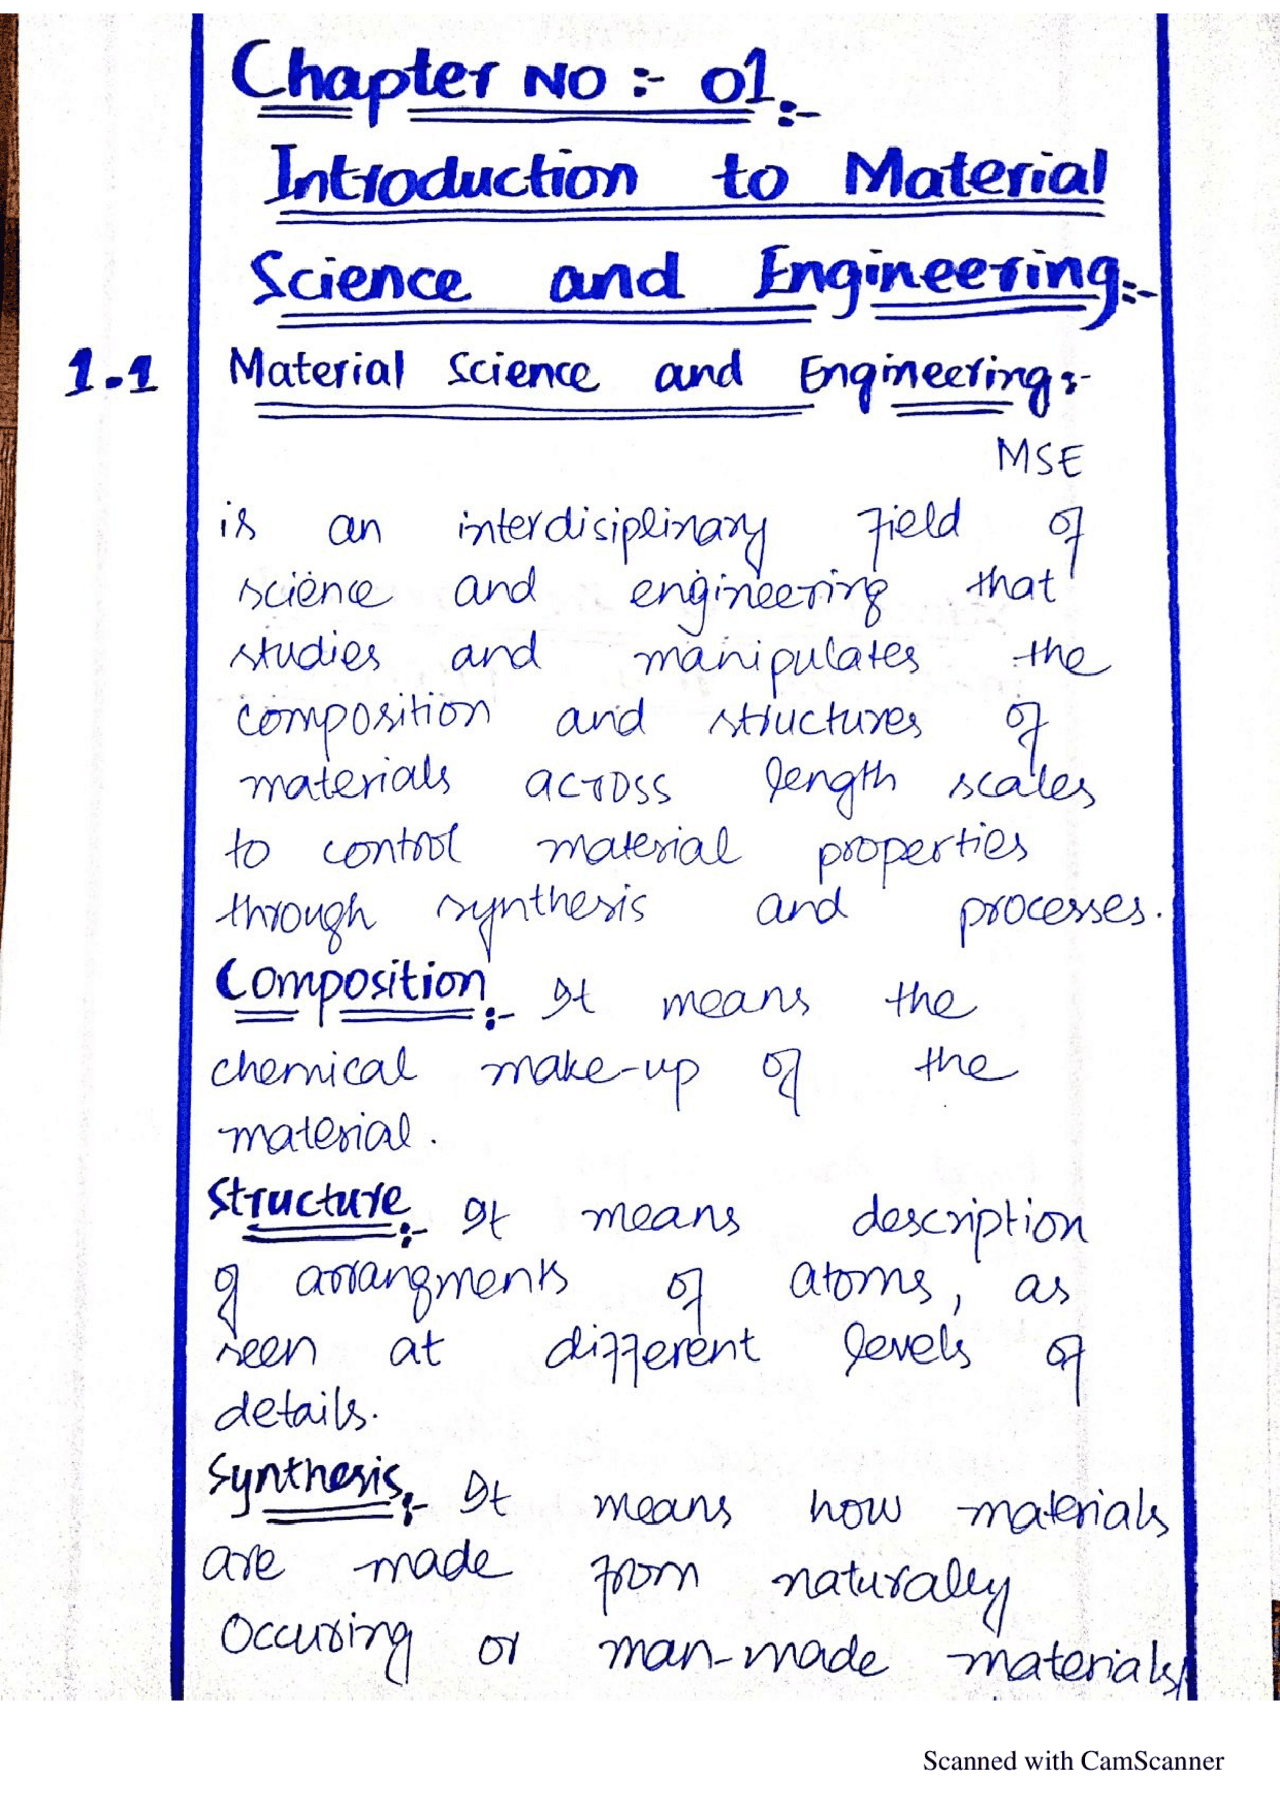 Chapter NO :- 01 :-
Introduction to Material
Science and Engineering :-
1.1 Material Science and Engineering :-
MSE
is an interdisiplinary field of
science and engineering that
studies and manipulates the
composition and structures of
materials across length scales
to control material properties
through synthesis and processes.
Composition :- It means the
chemical make-up of the
material.
Structure :- It means description
of arrangments of atoms, as
seen at different levels of
details.
Synthesis :- It means how materials
are made from naturaley
Occuring or man-made materials
Scanned with CamScanner